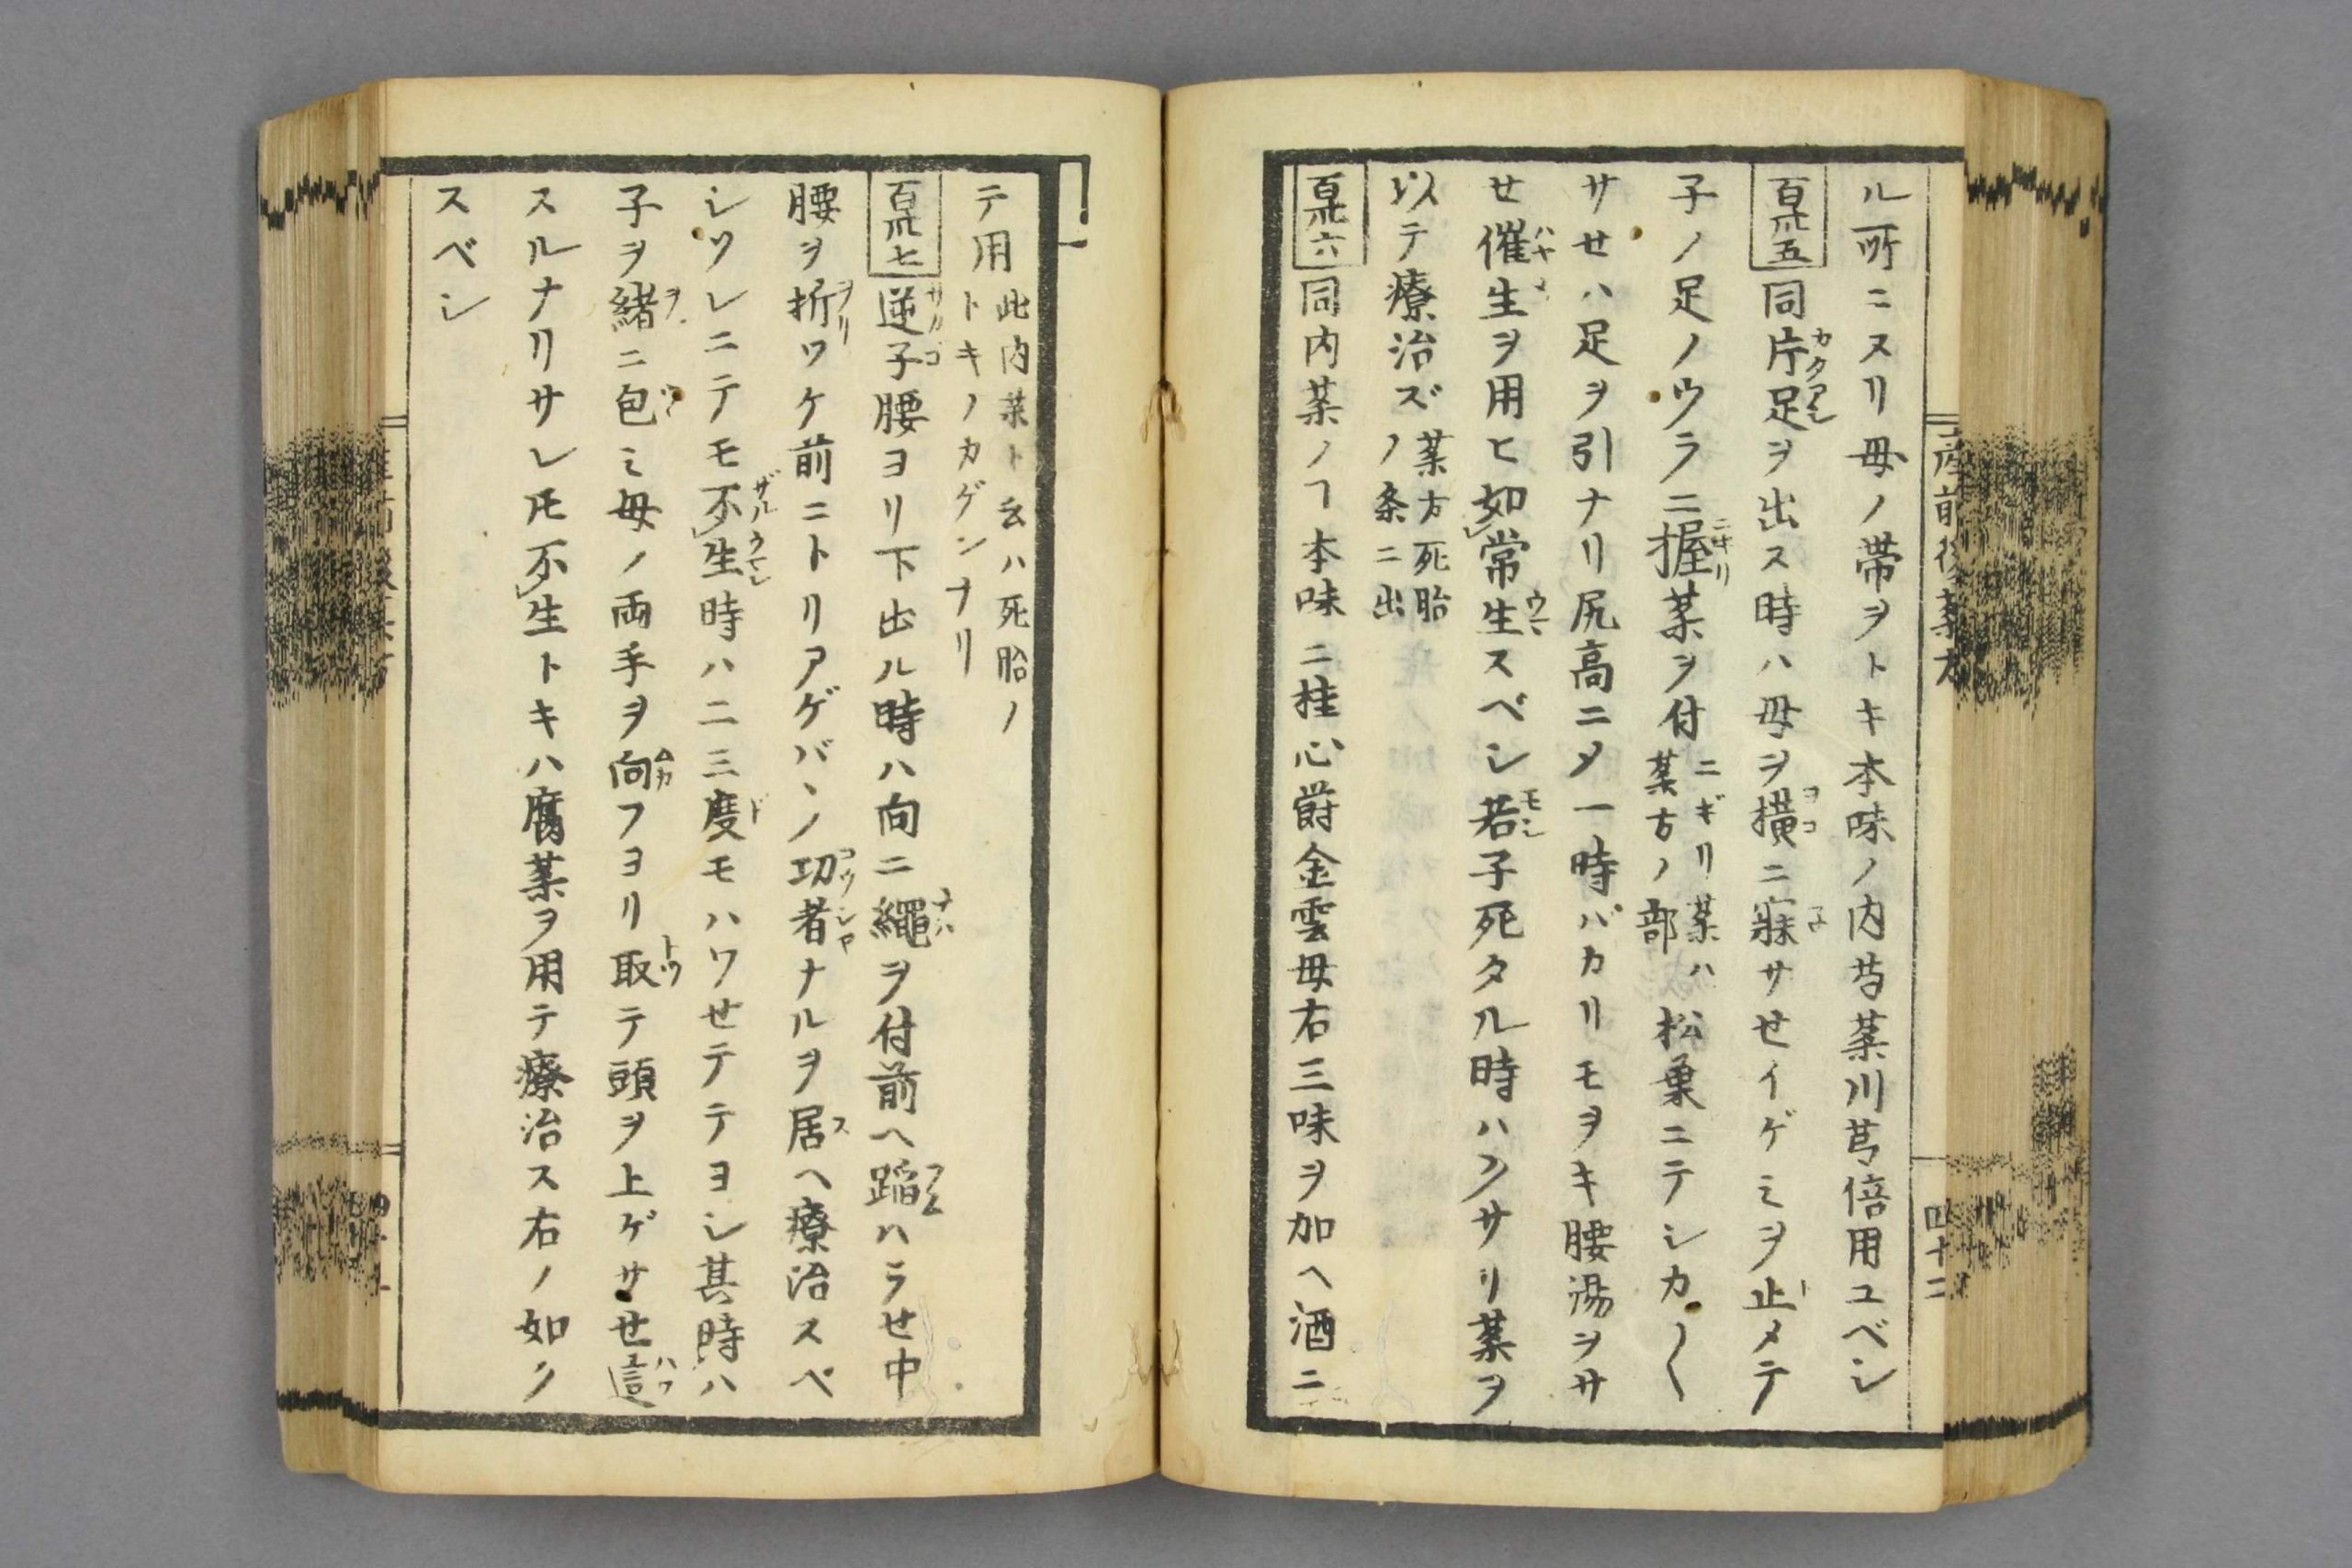 産前後薬方
四十二
ル所ニヌリ母ノ帯ヲトキ本味ノ内芍薬川芎倍用ユベシ
百卅五 同片足ヲ出ス時ハ母ヲ横ニ寐サセイゲミヲ止メテ
子ノ足ノウラニ握薬ヲ付 ニギリ薬ハ 薬方ノ部 松葉ニテシカ〱
サセハ足ヲ引ナリ尻高ニメ一時バカリモヲキ腰湯ヲサ
セ催生ヲ用ヒ如常生スベシ若子死タル時ハクサリ薬ヲ
以テ療治ズ 薬方死胎 ノ条ニ出
百卅六 同内薬ノヿ本味ニ桂心欝金雲母右三味ヲ加ヘ酒ニ
テ用 此内薬ト云ハ死胎ノ トキノカゲンナリ
百卅七 逆子腰ヨリ下出ル時ハ向ニ縄ヲ付前ヘ蹈ハラせ中
腰ヲ折ワケ前ニトリアゲバヽノ功者ナルヲ居ヘ療治スベ
シツレニテモ不生時ハ二三度モハワせテテヨシ其時ハ
子ヲ緒ニ包ミ母ノ両手ヲ向フヨリ取テ頭ヲ上ゲサせ這
スルナリサレ𪜈不生トキハ腐薬ヲ用テ療治ス右ノ如ク
スベシ